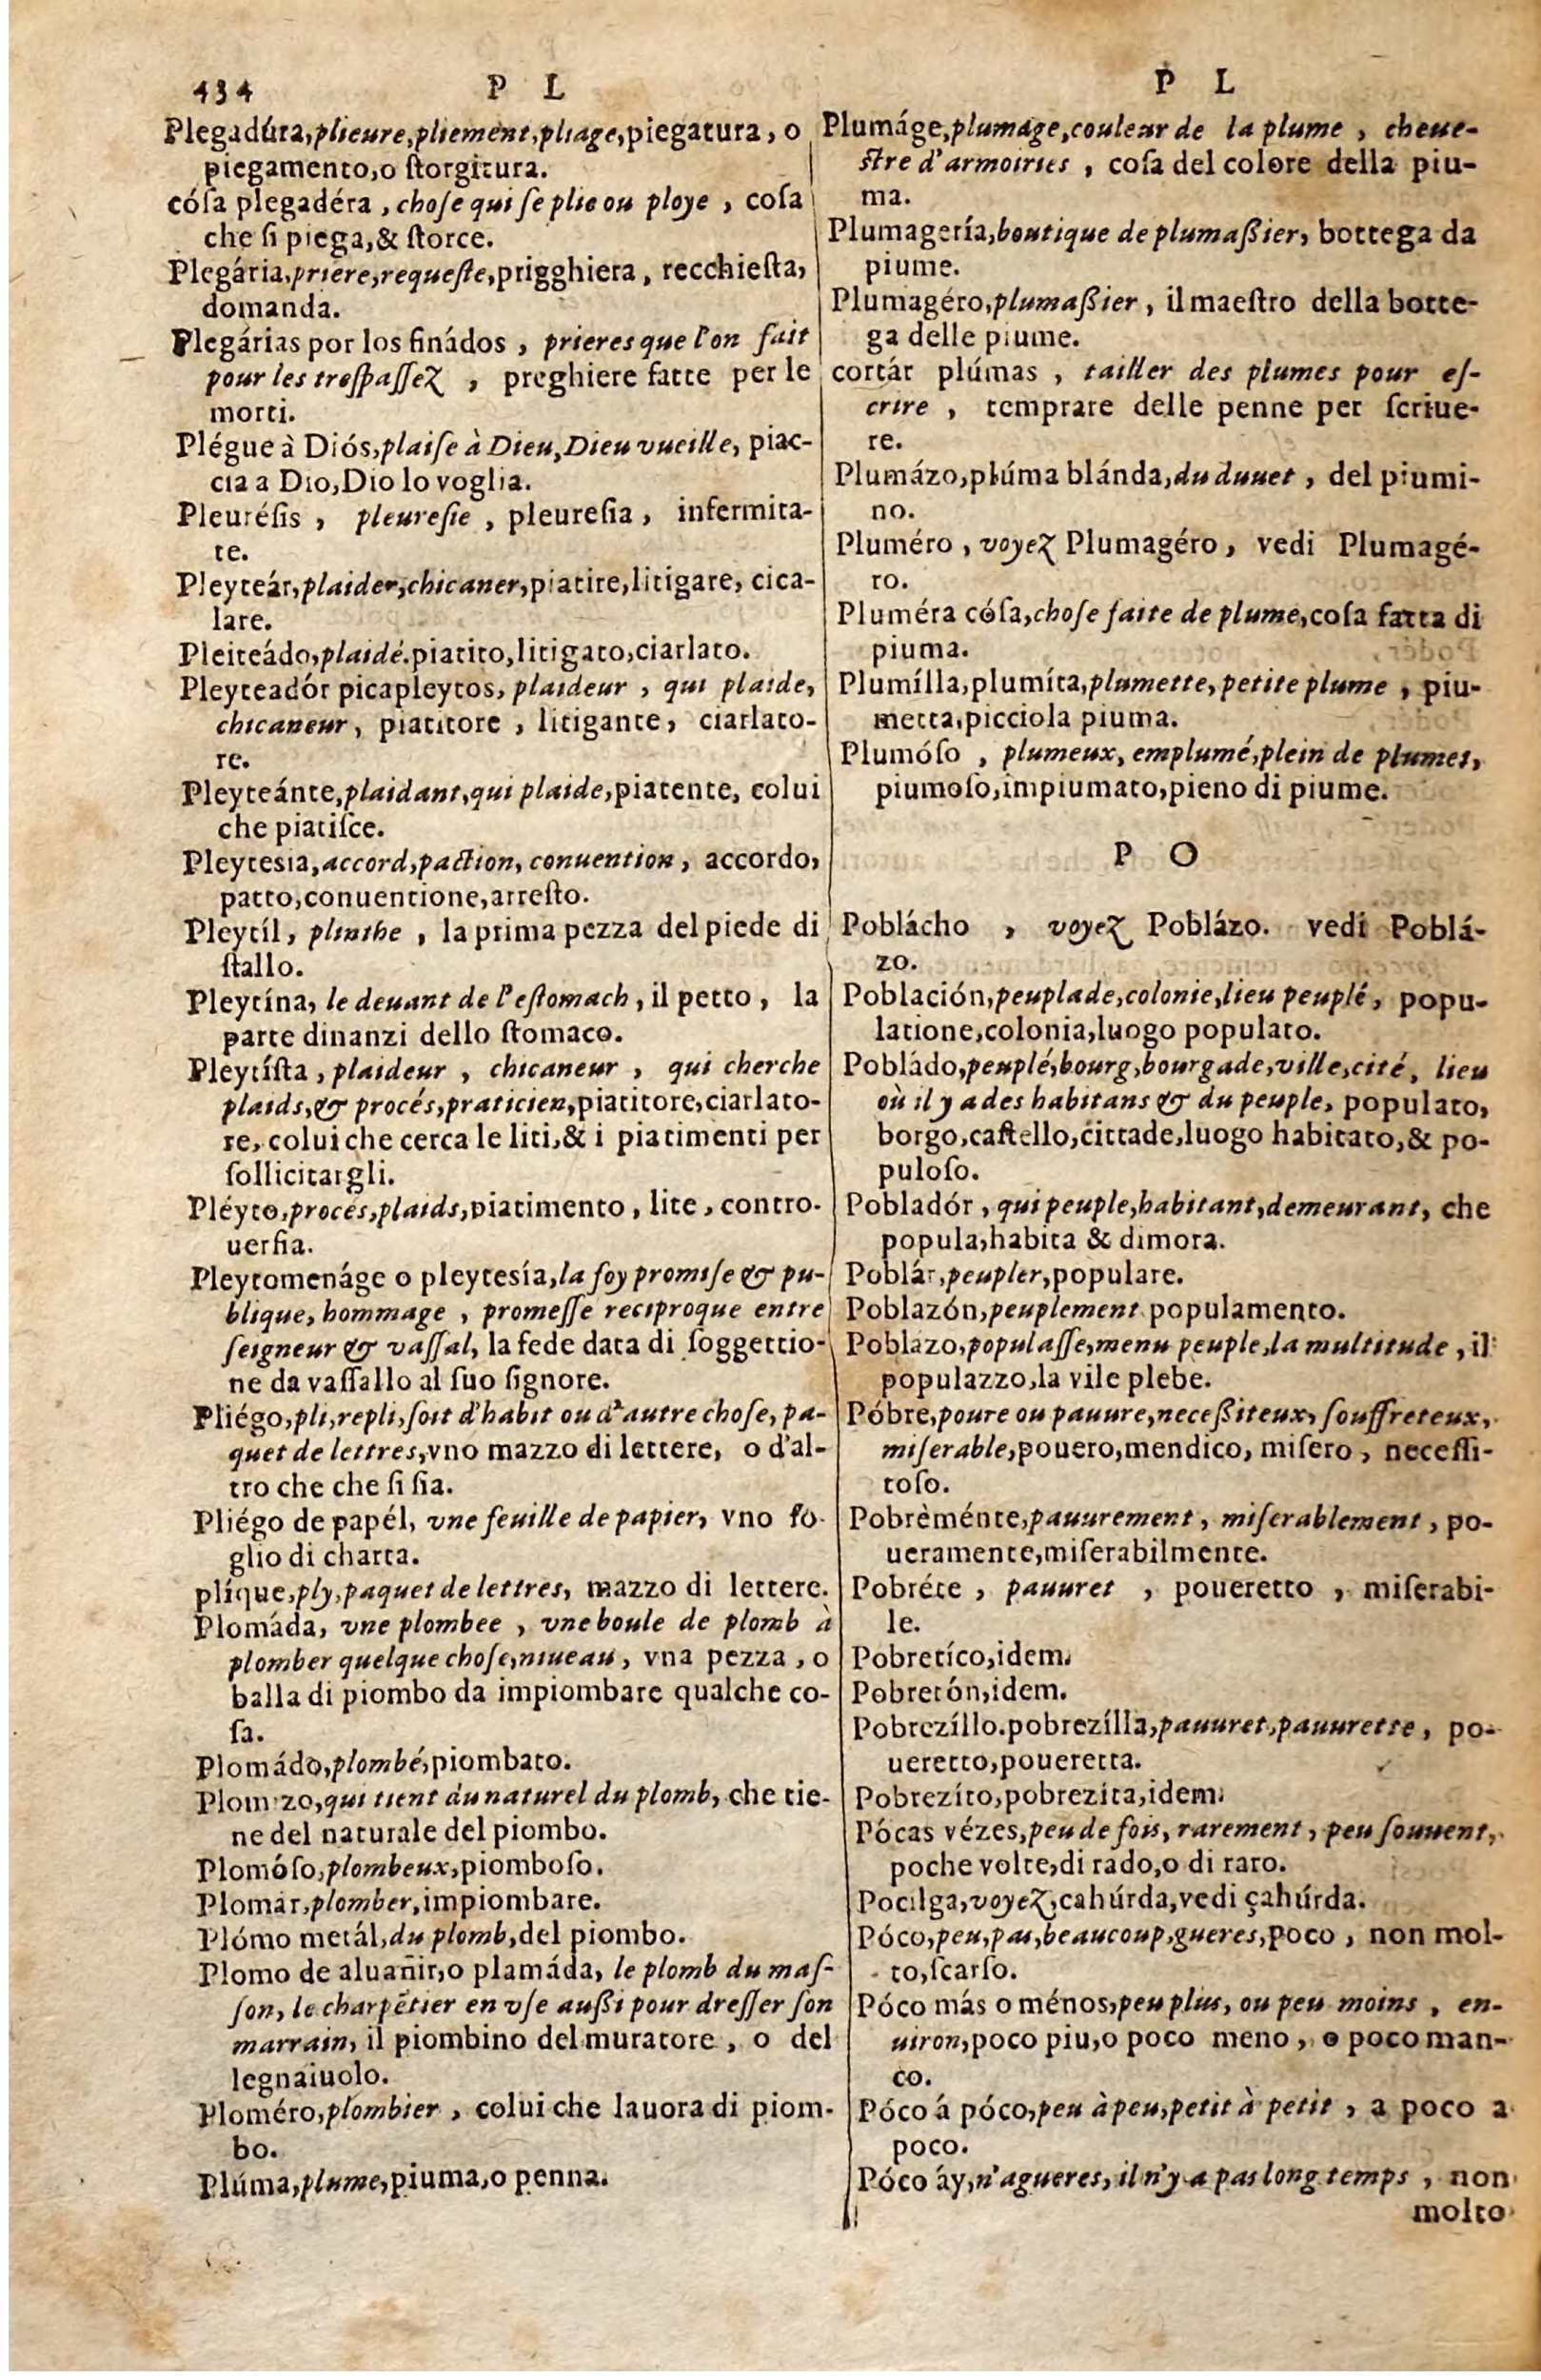 434 P L
Plegadúra,plieure,pliement,pliage,piegatura, o
piegamento,o ſtorgitura.
cóſa plegadéra, choſe qui ſe plie ou ploye, coſa
che ſi piega,& ſtorce.
Plegária,priere,requeſte,prigghiera, recchieſta,
domanda.
Plegárias por los finádos, prieres que l'on fait
pour les treſpaſſez, preghiere fatte per le
morti.
Plégue à Diós,plaiſe à Dieu,Dieu vueille, piac-
cia a Dio,Dio lo voglia.
Pleuréſis, pleureſie, pleureſia, infermita-
te.
Pleyteár,plaider,chicaner,piatire,litigare, cica-
lare.
Pleiteádo,plaidé.piatito,litigato,ciarlato.
Pleyteadór picapleytos, plaideur, qui plaide,
chicaneur, piatitore, litigante, ciarlato-
re.
Pleyteánte,plaidant,qui plaide,piatente, colui
che piatiſce.
Pleytesia,accord,paction, conuention, accordo,
patto,conuentione,arreſto.
Pleytíl, plinthe, la prima pezza del piede di
ſtallo.
Pleytína, le deuant de l'eſtomach, il petto, la
parte dinanzi dello ſtomaco.
Pleytíſta, plaideur, chicaneur, qui cherche
plaids,& procés,praticien,piatitore,ciarlato-
re, colui che cerca le liti,& i piatimenti per
ſollicitargli.
Pléyto,procés,plaids,piatimento, lite, contro-
uerſia.
Pleytomenáge o pleytesía,la foy promiſe & pu-
blique, hommage, promeſſe reciproque entre
ſeigneur & vaſſal, la fede data di ſoggettio-
ne da vaſſallo al ſuo ſignore.
Pliégo,pli,repli,ſoit d'habit ou d'autre choſe, pa-
quet de lettres,vno mazzo di lettere, o d'al-
tro che che ſi ſia.
Pliégo de papél, vne feuille de papier, vno fo-
glio di charta.
plíque,ply,paquet de lettres, mazzo di lettere.
Plomáda, vne plombee, vne boule de plomb à
plomber quelque choſe,niueau, vna pezza, o
balla di piombo da impiombare qualche co-
ſa.
Plomádo,plombé,piombato.
Plomizo,qui tient du naturel du plomb, che tie-
ne del naturale del piombo.
Plomóſo,plombeux,piomboſo.
Plomar,plomber,impiombare.
Plómo metál,du plomb,del piombo.
Plomo de aluañir,o plamáda, le plomb du maſ-
ſon, le charpẽtier en vſe außi pour dreſſer ſon
marrain, il piombino del muratore, o del
legnaiuolo.
Ploméro,plombier, colui che lauora di piom-
bo.
Plúma,plume,piuma,o penna.
P L
Plumáge,plumage,couleur de la plume, cheue-
ſtre d'armoiries, coſa del colore della piu-
ma.
Plumagería,boutique de plumaßier, bottega da
piume.
Plumagéro,plumaßier, il maeſtro della botte-
ga delle piume.
cortár plúmas, tailler des plumes pour eſ-
crire, temprare delle penne per ſcriue-
re.
Plumázo,plúma blánda,du duuet, del piumi-
no.
Pluméro, voyez Plumagéro, vedi Plumagé-
ro.
Pluméra cóſa,choſe faite de plume,coſa fatta di
piuma.
Plumílla,plumíta,plumette,petite plume, piu-
metta,picciola piuma.
Plumóſo, plumeux, emplumé,plein de plumes,
piumoſo,impiumato,pieno di piume.
P O
Poblácho, voyez Poblázo. vedi Poblá-
zo.
Población,peuplade,colonie,lieu peuplé, popu-
latione,colonia,luogo populato.
Pobládo,peuplé,bourg,bourgade,ville,cité, lieu
où il y a des habitans & du peuple, populato,
borgo,caſtello,cittade,luogo habitato,& po-
puloſo.
Pobladór, qui peuple,habitant,demeurant, che
popula,habita & dimora.
Poblár,peupler,populare.
Poblazón,peuplement populamento.
Poblazo,populaſſe,menu peuple,la multitude, il
populazzo,la vile plebe.
Póbre,poure ou pauure,neceßiteux, ſouffreteux,
miſerable,pouero,mendico, miſero, neceſſi-
toſo.
Pobrèménte,pauurement, miſerablement, po-
ueramente,miſerabilmente.
Pobréte, pauuret, poueretto, miſerabi-
le.
Pobretíco,idem.
Pobretón,idem.
Pobrezíllo.pobrezílla,pauuret,pauurette, po-
ueretto,poueretta.
Pobrezíto,pobrezita,idem.
Pócas vézes,peu de fois, rarement, peu ſouuent,
poche volte,di rado,o di raro.
Pocilga,voyez,cahúrda,vedi çahúrda.
Póco,peu,pas,beaucoup,gueres,poco, non mol-
to,ſcarſo.
Póco más o ménos,peu plus, ou peu moins, en-
uiron,poco piu,o poco meno, o poco man-
co.
Póco á póco,peu à peu,petit à petit, a poco a
poco.
Póco áy,n'agueres, il n'y a pas long temps, non
molto